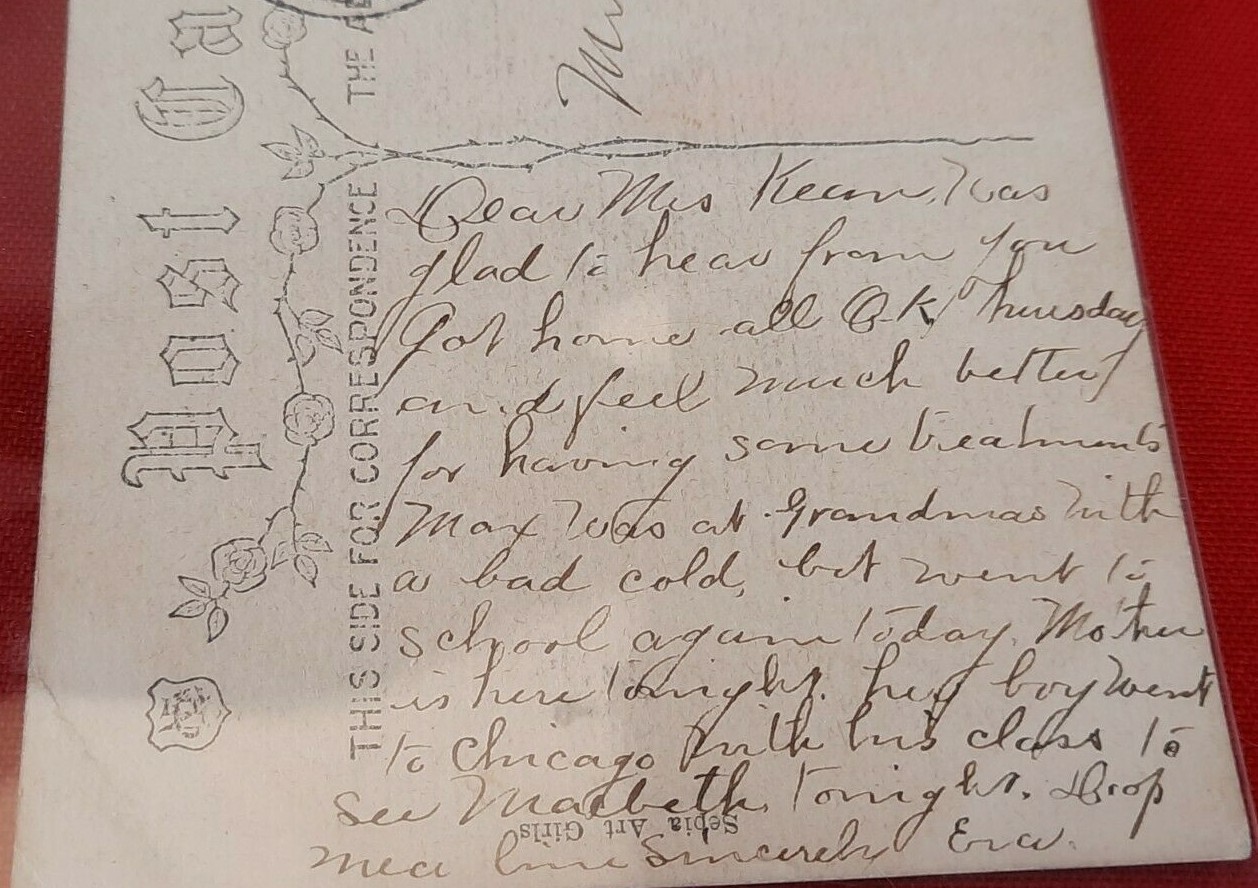 Post Ca
THIS SIDE FOR CORRESPONDENCE
THE A
M
Dear Mrs Kean, Was
glad to hear from you
Got home all O.K. Thursday
and feel much better
for having some treatments
Max was at Grandmas with
a bad cold, but went to
school again today. Mother
is here tonight. her boy went
to Chicago with his class to
see Macbeth, tonight. Drop
me a line Sincerely Eva.
Sepia Art Girls